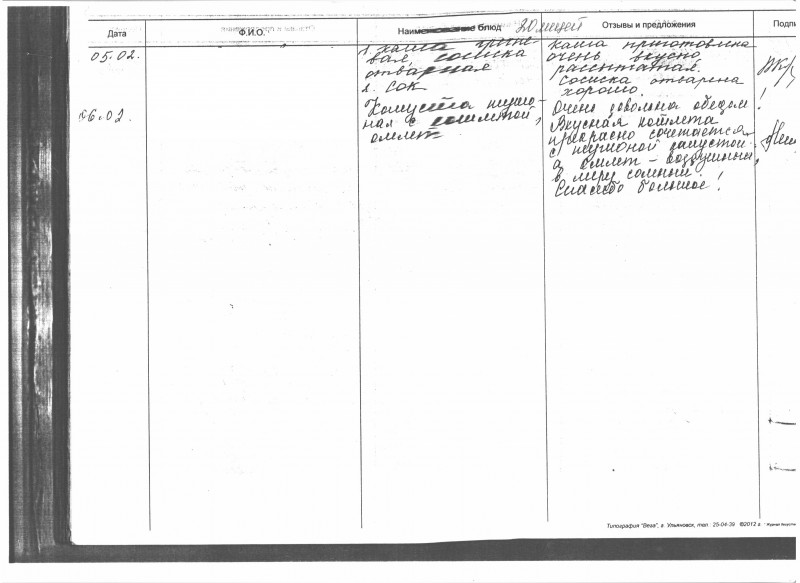 Дата
Ф.И.О.
Наименование блюд
Отзывы и предложения
05.02.
1. каша гречневая, сосиска
отварная
2. сок
Каша приготовлена
очень вкусно
рассыпчатая.
Сосиска отварена
хорошо.
06.02.
Капуста тушеная с котлетой,
омлет
Очень довольна обедом!
Вкусная котлета
прекрасно сочетается
с тушоной капустой,
а омлет – воздушный,
в меру сочный.
Спасибо большое!
Типография "Вега", г. Ульяновск, тел.: 25-04-39 ©2012 г.